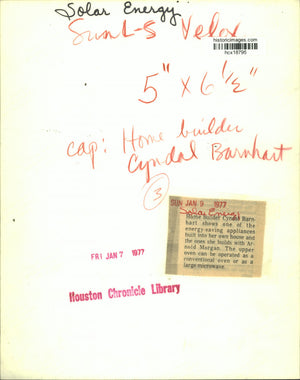 Solar Energy
Sun L-S Velox
historicimages.com
hcx18795
5" x 6 1/2"
cap: Home builder
Cyndal Barnhart
3
SUN JAN 9 1977
Solar Energy
Home builder Cyndal Barn-
hart shows one of the
energy-saving appliances
built into her own house and
the ones she builds with Ar-
nold Morgan. The upper
oven can be operated as a
conventional oven or as a
large microwave.
FRI JAN 7 1977
Houston Chronicle Library